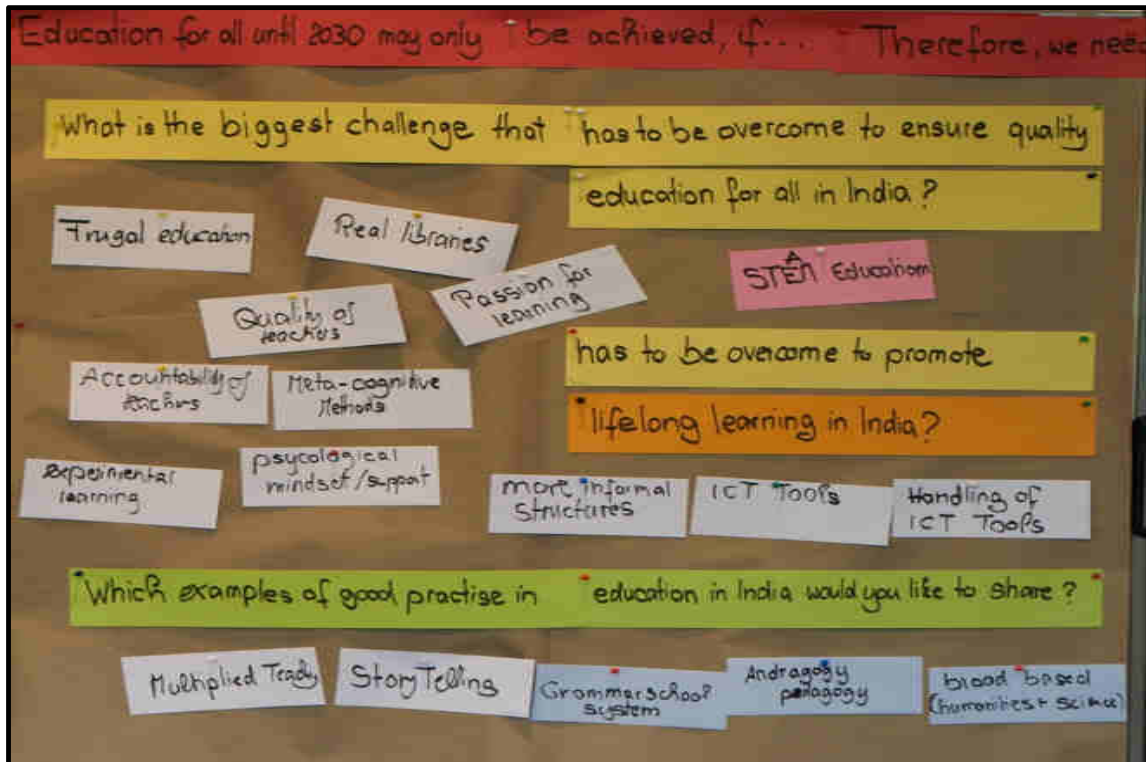 Education for all until 2030 may only be achieved, if.... Therefore, we nee
What is the biggest challenge that has to be overcome to ensure quality
education for all in India?
Frugal education
Real libraries
STEM Education
A
Quality of
teachers
Passion for
learning
has to be overcome to promote
lifelong learning in India?
Accountability of
teachers
Meta-cognitive
Methods
experimental
learning
psycological
mindset/support
more informal
structures
ICT Tools
Handling of
ICT Tools
Which examples of good practise in education in India would you like to share?
Multiplied
Story Telling
Grommerschool
system
Andragogy
pedagogy
broad based
(humanities + science)